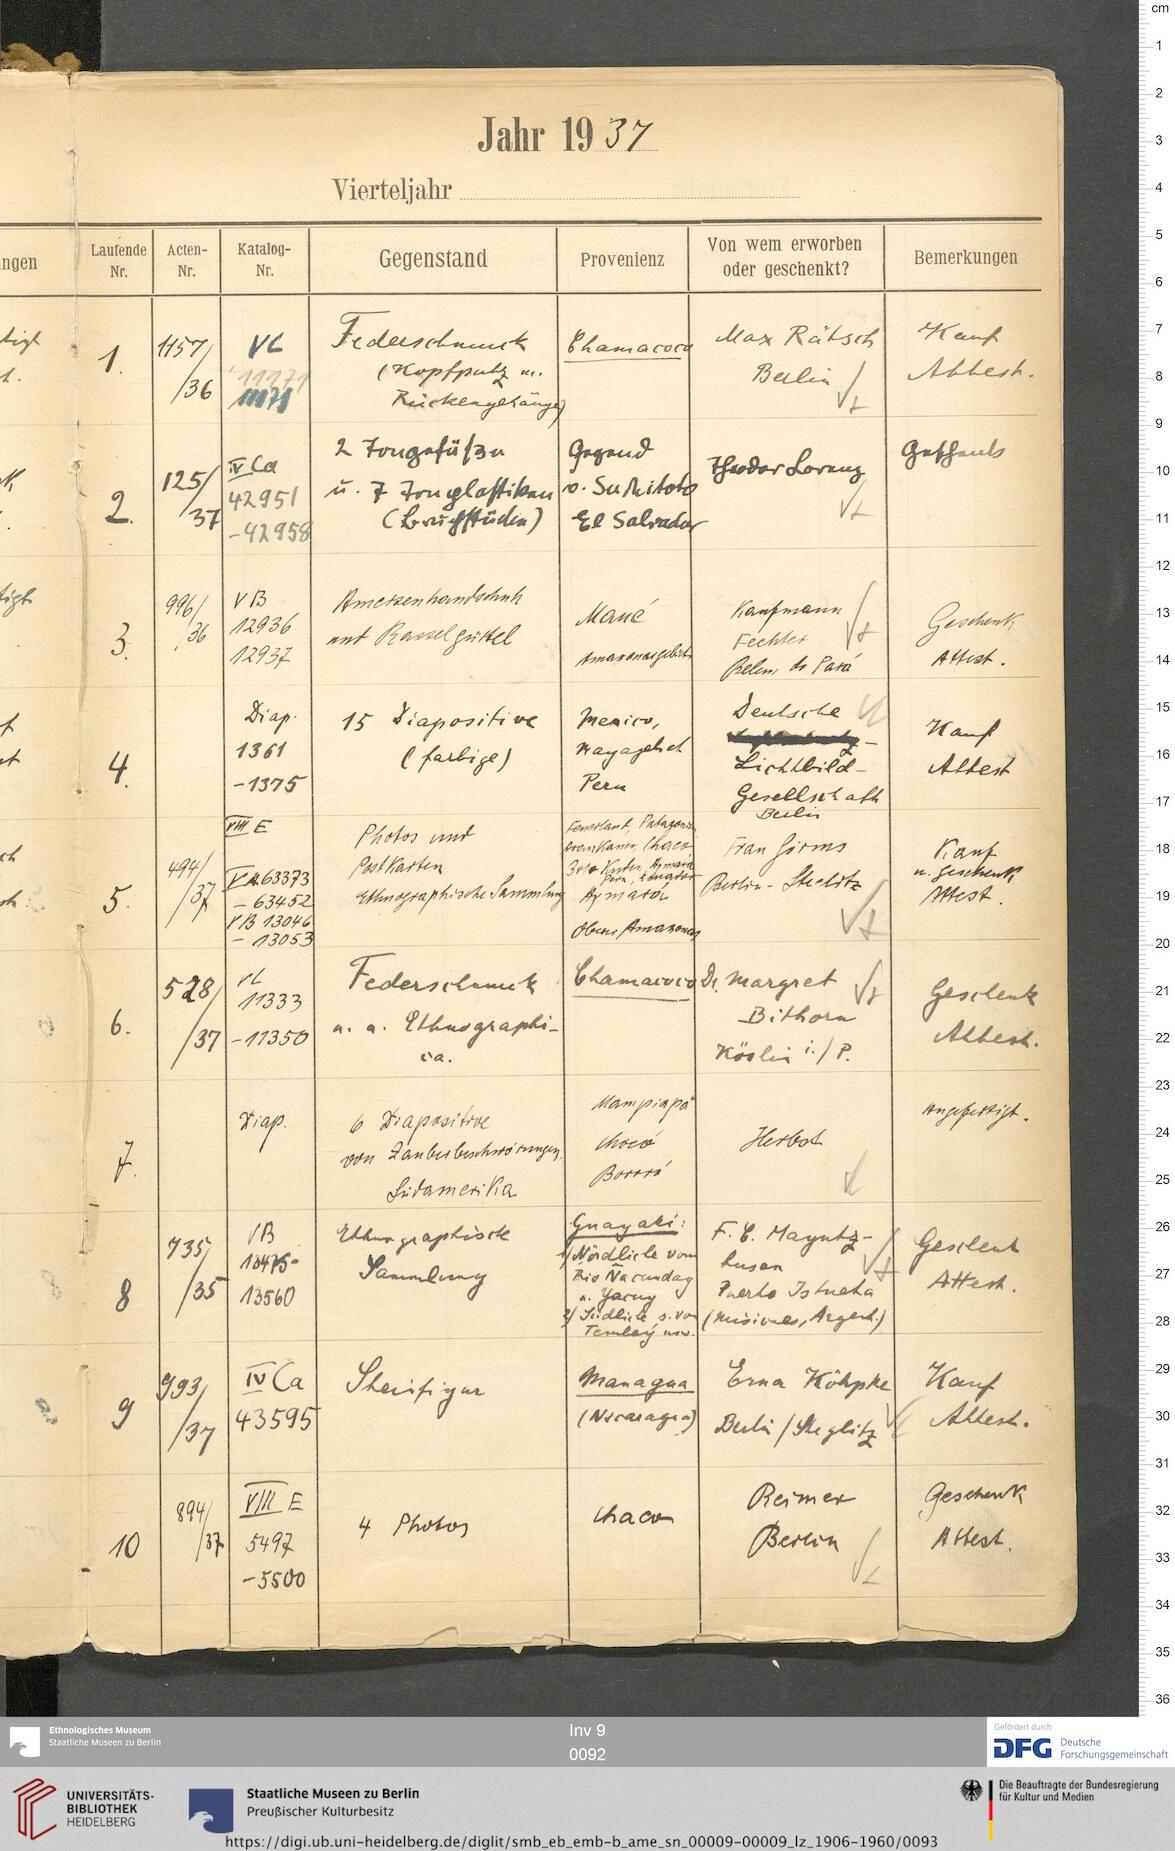 Jahr 1937
Vierteljahr
ngen
Laufende Nr.
Acten-Nr.
Katalog-Nr.
Gegenstand
Provenienz
Von wem erworben oder geschenkt?
Bemerkungen
1.
1157/
/36
VC
11171
Federschmuck
(Kopfputz u.
Rückengehänge)
Chamacoco
Max Rätsch
Berlin
Kauf
Attest.
2.
125/
37
IV Ca
42951
-42958
2 Tongefäße
u. 7 Tonplastiken
(Bruchstücke)
Gegend
v. Suchitoto
El Salvador
Theodor Lorenz
Geschenk
3.
996/
/36
VB
12936
12937
Ameisenhandschuh
mit Rasselgürtel
Maué
Amazonasgebiet
Kaufmann
Fechter
Belem do Pará
Geschenk
Attest.
4.
Diap.
1361
-1375
15 Diapositive
(farbige)
Mexico,
Mayagebiet
Peru
Deutsche
Lichtbild-
Gesellschaft
Berlin
Kauf
Attest
5.
494/
/37
VIII E
VA 63373
- 63452
VB 13046
- 13053
Photos und
Postkarten
Ethnographische Sammlung
Feuerland, Patagonien
Araukaner, Chaco
Peru, Ecuador
Aymará
Oberer Amazonas
Frau Girms
Berlin-Steglitz
Kauf
u. Geschenk
Attest.
6.
528/
/37
VC
11333
-11350
Federschmuck
u. a. Ethnographi-
ca.
Chamacoco
Dr. Margret
Bithorn
Köslin i./P.
Geschenk
Attest.
7.
Diap.
6 Diapositive
von Zauberbeschwörungen.
Südamerika
Mampiapá
Chocó
Bororó
Herbst
Angefertigt.
8
735/
/35
VB
13475-
13560
Ethnographische
Sammlung
Guayaki:
1) Nördliche vom
Rio Ñacunday
u. Yacuy
2) Südliche s. von
Tembey usw.
F. C. Mayntz-
husen
Puerto Istueta
(Misiones, Argent.)
Geschenk
Attest.
9
993/
/37
IV Ca
43595
Steinfigur
Managua
(Nicaragua)
Erna Köhpke
Berlin/Steglitz
Kauf
Attest.
10
894/
/37
VIII E
5497
-5500
4 Photos
Chaco
Reimer
Berlin
Geschenk
Attest.
cm
1
2
3
4
5
6
7
8
9
10
11
12
13
14
15
16
17
18
19
20
21
22
23
24
25
26
27
28
29
30
31
32
33
34
35
36
Ethnologisches Museum
Staatliche Museen zu Berlin
Inv 9
0092
Gefördert durch
DFG Deutsche
Forschungsgemeinschaft
UNIVERSITÄTS-
BIBLIOTHEK
HEIDELBERG
Staatliche Museen zu Berlin
Preußischer Kulturbesitz
Die Beauftragte der Bundesregierung
für Kultur und Medien
https://digi.ub.uni-heidelberg.de/diglit/smb_eb_emb-b_ame_sn_00009-00009_lz_1906-1960/0093